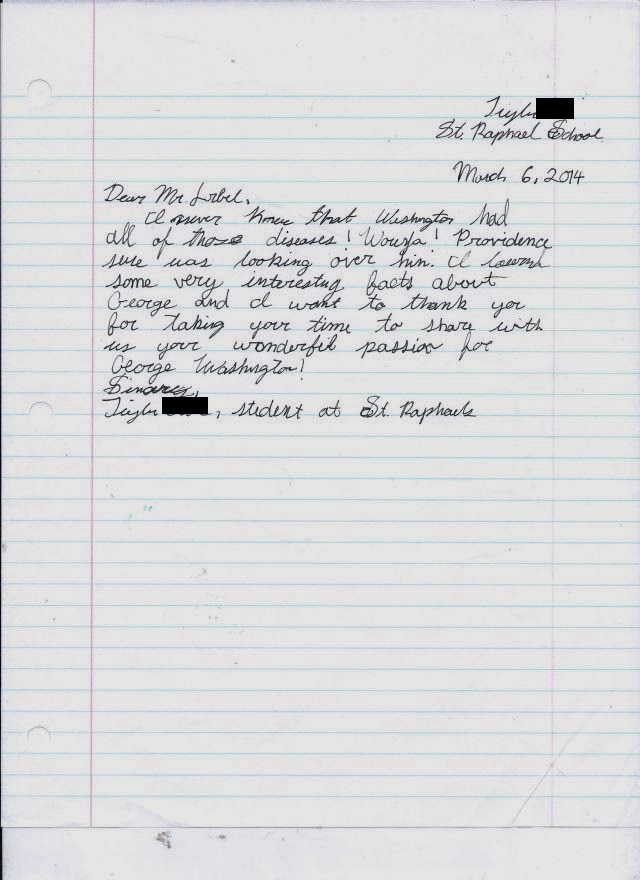 Taylor
St. Raphael School
March 6, 2014
Dear Mr Lobel,
I never knew that Washington had
all of those diseases! Wow! Providence
sure was looking over him. I learn
some very interesting facts about
George and I want to thank you
for taking your time to share with
us your wonderful passion for
George Washington!
Sincerely,
Taylor, student at St. Raphaels